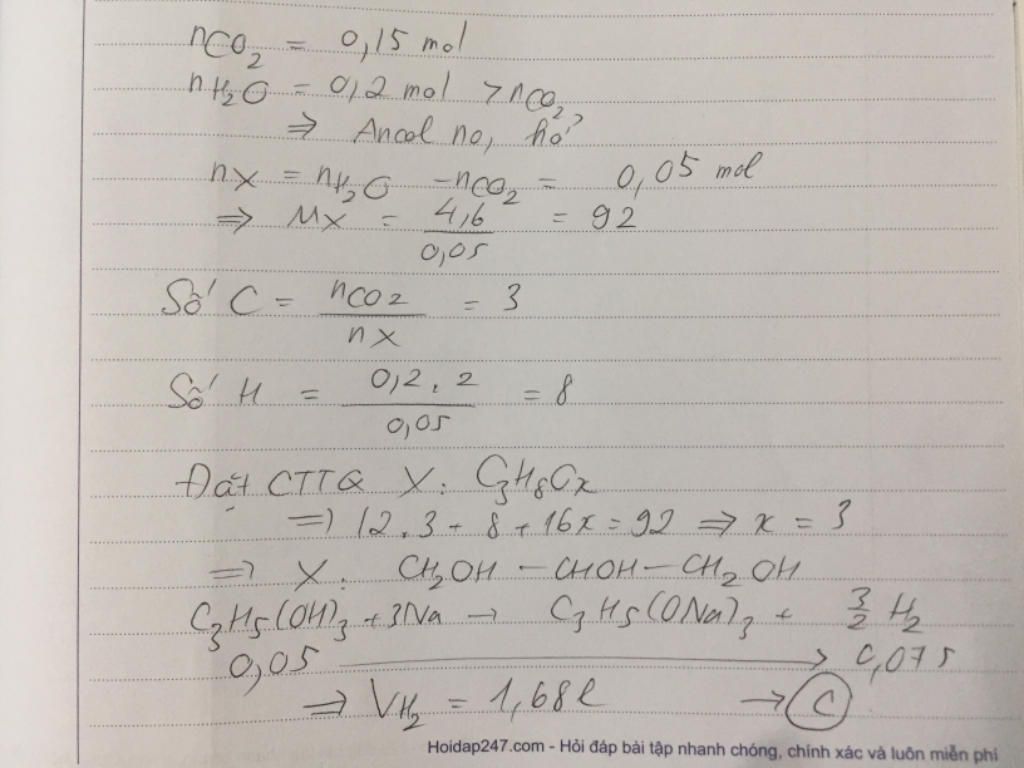 nCO₂ = 0,15 mol
nH₂O = 0,2 mol > nCO₂
⇒ Ancol no, hở
nX = nH₂O - nCO₂ = 0,05 mol
⇒ MX = 4,6 / 0,05 = 92
Số C = nCO2 / nX = 3
Số H = 0,2 . 2 / 0,05 = 8
Đặt CTTQ X: C₃H₈Ox
⇒ 12.3 + 8 + 16x = 92 ⇒ x = 3
⇒ X: CH₂OH - CHOH - CH₂OH
C₃H₅(OH)₃ + 3Na → C₃H₅(ONa)₃ + 3/2 H₂
0,05 → 0,075
⇒ VH₂ = 1,68l → C
Hoidap247.com - Hỏi đáp bài tập nhanh chóng, chính xác và luôn miễn phí